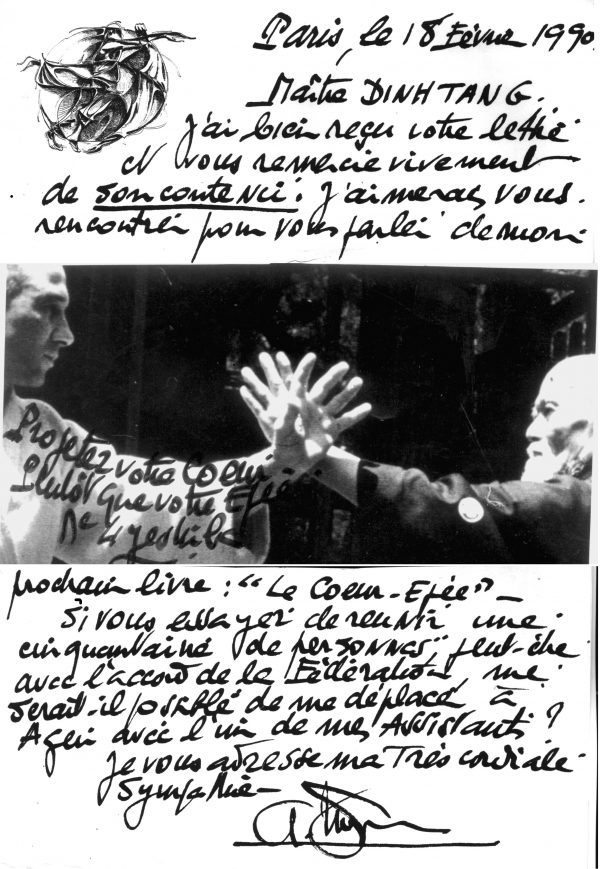 Paris, le 18 Février 1990
Maître DINH TANG.
J'ai bien reçu votre lettre
et vous remercie vivement
de son contenu : j'aimerais vous
rencontrer pour vous parler de mon
Projetez votre Coeur
Plutôt que votre Epée
prochain livre : "Le Coeur-Epée" _
Si vous essayez de réunir une
cinquantaine de personnes, peut-être
avec l'accord de la Fédération, me
serait-il possible de me déplacer à
Agen avec l'un de mes Assistants ?
Je vous adresse ma Très cordiale
Sympathie _